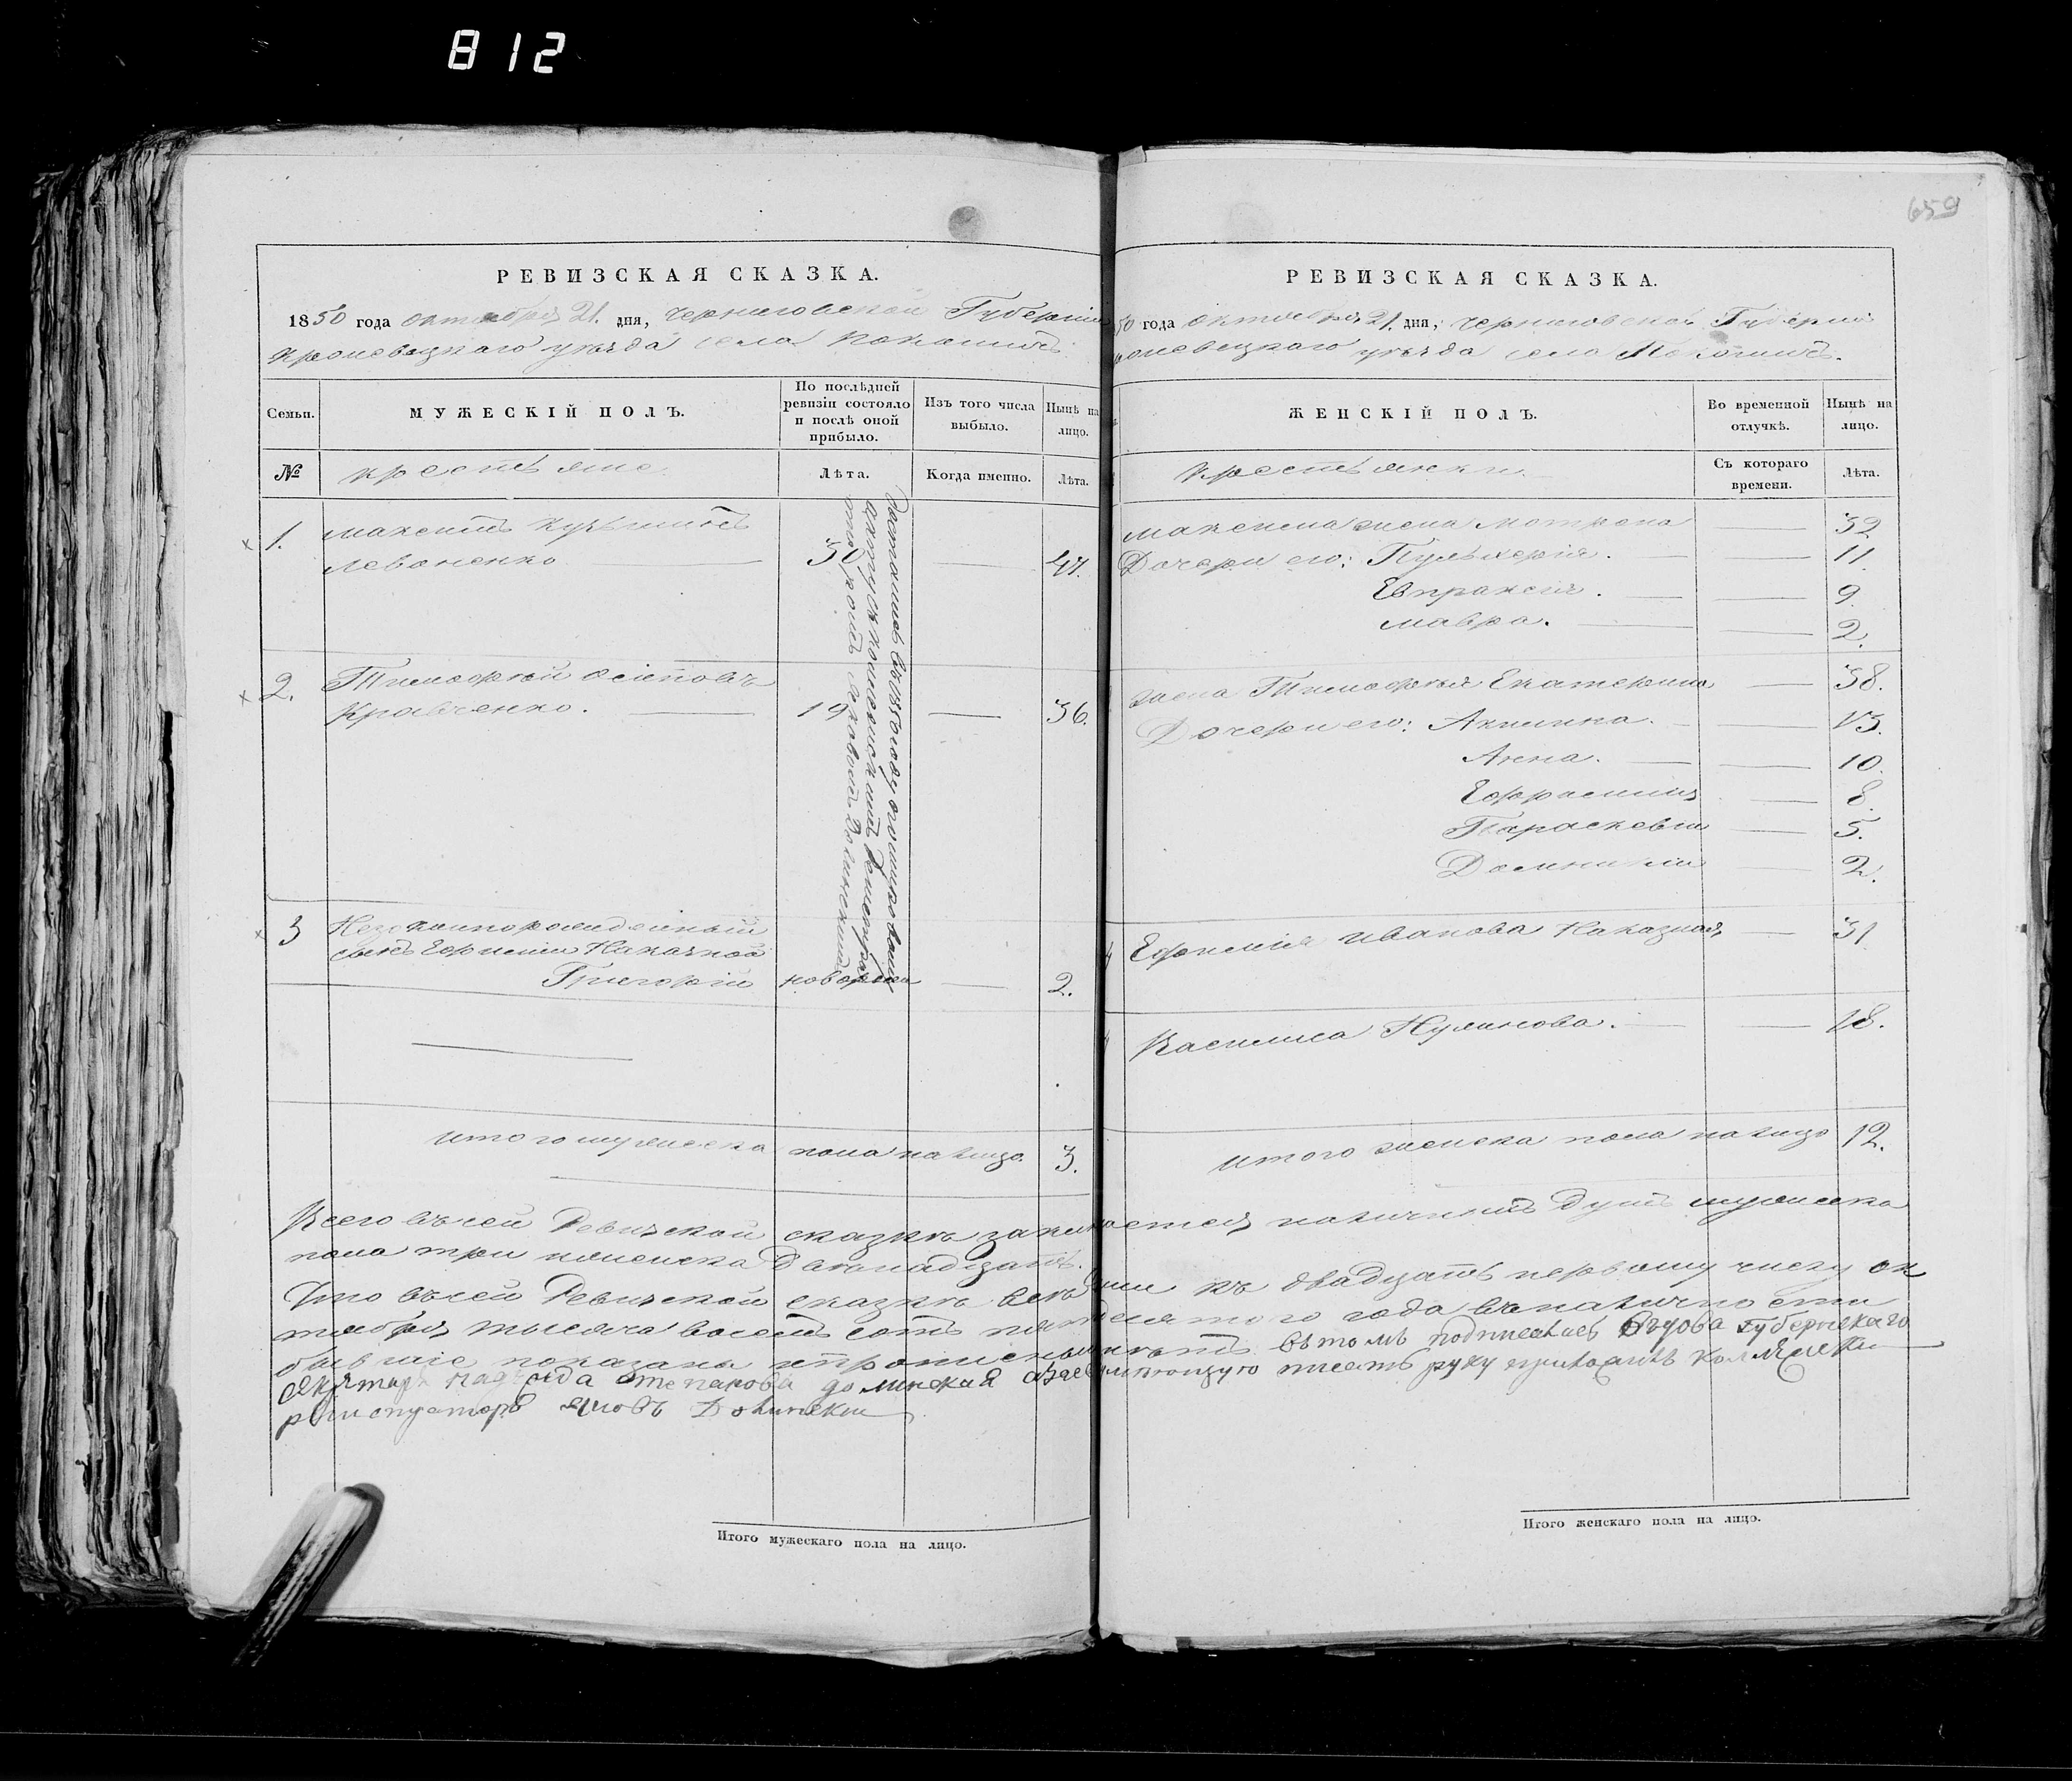 812
659
РЕВИЗСКАЯ СКАЗКА.
1850 года октября 21. дня, Черниговской Губерніи
Кролевецкаго уѣзда села Покошичь
Семьи.
МУЖЕСКІЙ ПОЛЪ.
По послѣдней ревизіи состояло и послѣ оной прибыло.
Изъ того числа выбыло.
Нынѣ на лицо.
№
крестьяне
Лѣта.
Когда именно.
Лѣта.
1. Максимъ Кузьминъ
Леваненко 30 47.
2. Тимофей Осиповъ
Кравченко. 19 36.
3 Незаконнорожденный
сынъ Ефиміи Наказной
Григорій новорож 2.
Итого мужеска пола на лицо. 3.
РЕВИЗСКАЯ СКАЗКА.
50 года октября 21. дня, Черниговской Губерніи
ролевецкаго уѣзда села Покошичь.
ЖЕНСКІЙ ПОЛЪ.
Во временной отлучкѣ.
Нынѣ на лицо.
крестьянки
Съ котораго времени.
Лѣта.
Максима жена Мотрона 32
Дочери его: Пульхерія. 11.
Евпраксія. 9.
Мавра. 2.
жена Тимофея Екатерина 38.
Дочери его: Акилина. 13.
Анна. 10.
Ефросинія 8.
Параскевія 5.
Домникія 2.
Ефимія Иванова Наказная 31
Василиса Куликова. 18.
Итого женска пола на лицо 12.
Всего въ сей Ревизской сказкѣ заключается наличныхъ душъ мужеска
пола три женска двенадцать.
Что въ сей Ревизской сказкѣ всѣ къ двадцать первому числу ок
тября тысяча восемь сотъ пятдесятого года въ наличности
бывшіе показаны въ томъ подписалась вдова губернскаго
секретаря Надежда Степанова Долинская а писать руку приложилъ коллежскій
регистраторъ Яковъ Долинскій
Итого мужескаго пола на лицо.
Итого женскаго пола на лицо.